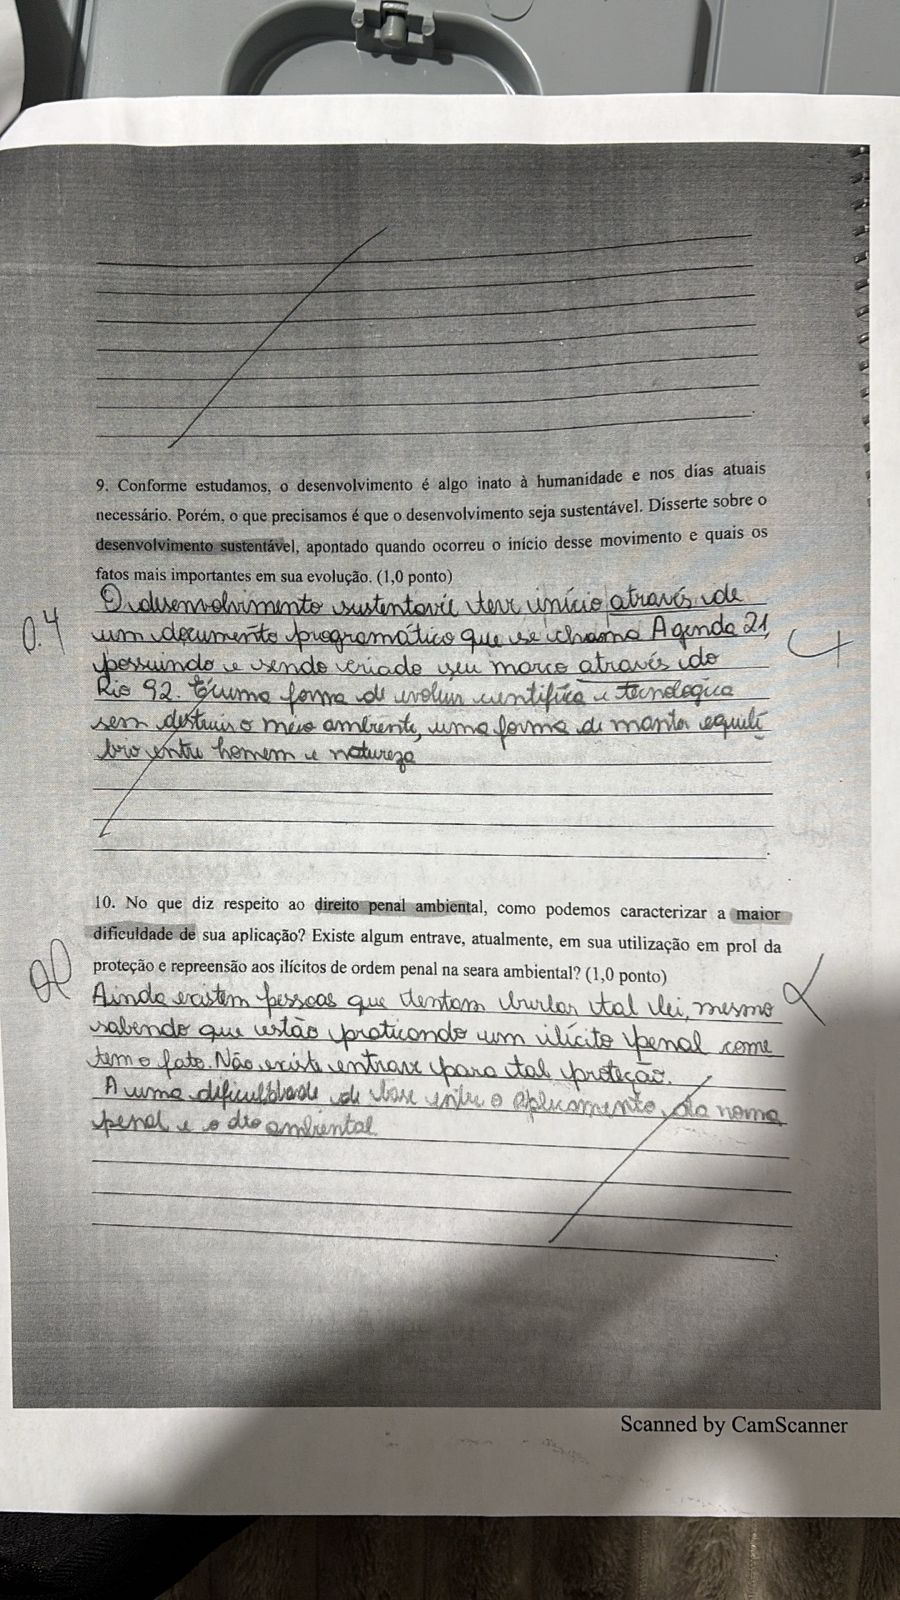 9. Conforme estudamos, o desenvolvimento é algo inato à humanidade e nos dias atuais
necessário. Porém, o que precisamos é que o desenvolvimento seja sustentável. Disserte sobre o
desenvolvimento sustentável, apontado quando ocorreu o início desse movimento e quais os
fatos mais importantes em sua evolução. (1,0 ponto)
0.4
O desenvolvimento sustentavil teve início através de
um documento programático que se chama Agenda 21,
possuindo e sendo criado seu marco através do
Rio 92. É uma forma de evoluir científica e tecnologica
sem destruir o meio ambiente, uma forma de manter equilí
brio entre homem e natureza
10. No que diz respeito ao direito penal ambiental, como podemos caracterizar a maior
dificuldade de sua aplicação? Existe algum entrave, atualmente, em sua utilização em prol da
proteção e repreensão aos ilícitos de ordem penal na seara ambiental? (1,0 ponto)
Ainda existem pessoas que tentam burlar tal lei, mesmo
sabendo que estão praticando um ilícito penal come
tem o fato. Não existe entrave para tal proteção.
A uma dificuldade de base entre o aplicamento da norma
penal e o dto ambiental
Scanned by CamScanner